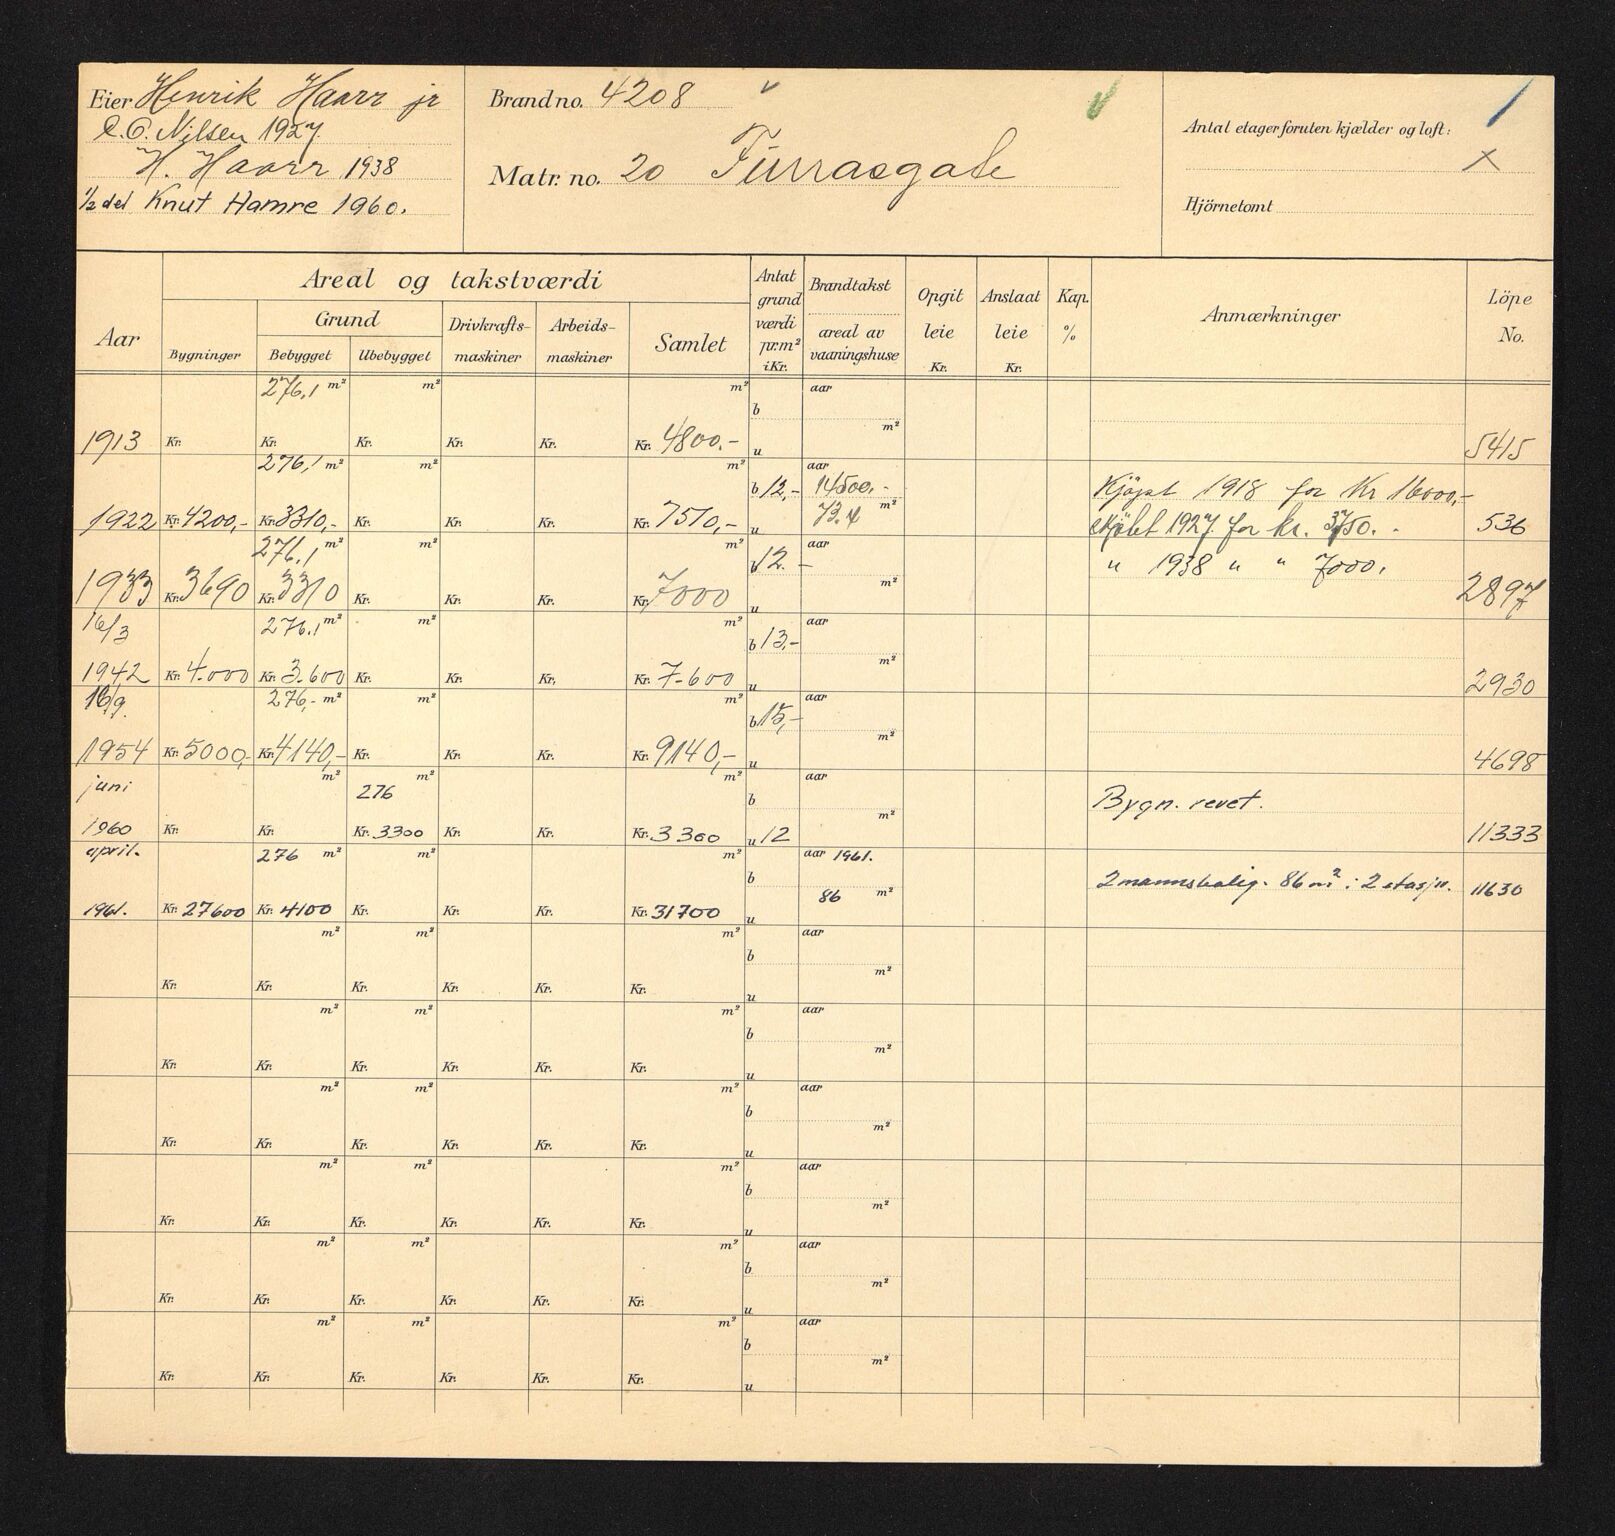 Eier Henrik Haarr jr
C. O. Nilsen 1927
H. Haarr 1938
1/2 del Knut Hamre 1960.
Brand no. 4208
Matr. no. 20 Turragate
Antal etager foruten kjælder og loft:
x
Hjörnetomt
Aar
Areal og takstværdi
Bygninger
Grund
Bebygget
Ubebygget
Drivkrafts-
maskiner
Arbeids-
maskiner
Samlet
Antat
grund
værdi
pr. m²
i Kr.
Brandtakst
areal av
vaaningshuse
Opgit
leie
Kr.
Anslaat
leie
Kr.
Kap.
%
Anmærkninger
Löpe
No.
276,1 m² m² m² aar
b
m²
1913 Kr. Kr. Kr. Kr. Kr. Kr. 4800.- u 5415
276,1 m² m² m² aar
b 12,- 14500,- Kjøpt 1918 for Kr 16000,-
m²
1922 Kr. 4200,- Kr. 3310,- Kr. Kr. Kr. Kr. 7510,- u 73.4 Kjøbt 1927 for kr. 3750. - 536
276,1 m² m² m² aar
b 12.- " 1938 " " 7000.
m²
1933 Kr. 3690 Kr. 3310 Kr. Kr. Kr. Kr. 7000 u 2897
16/3 276.1 m² m² m² aar
b 13,-
m²
1942 Kr. 4.000 Kr. 3.600 Kr. Kr. Kr. Kr. 7.600 u 2930
16/9. 276,- m² m² m² aar
b 15,-
m²
1954 Kr. 5000,- Kr. 4140,- Kr. Kr. Kr. Kr. 9140,- u 4698
juni m² 276 m² m² aar
b Bygn. revet.
m²
1960 Kr. Kr. Kr. 3300 Kr. Kr. Kr. 3300 u 12 11333
april. 276 m² m² m² aar 1961.
b 2mannsbolig. 86 m² i 2 etasjer. 11630
86 m²
1961. Kr. 27600 Kr. 4100 Kr. Kr. Kr. Kr. 31700 u
m² m² m² aar
b
m²
Kr. Kr. Kr. Kr. Kr. Kr. u
m² m² m² aar
b
m²
Kr. Kr. Kr. Kr. Kr. Kr. u
m² m² m² aar
b
m²
Kr. Kr. Kr. Kr. Kr. Kr. u
m² m² m² aar
b
m²
Kr. Kr. Kr. Kr. Kr. Kr. u
m² m² m² aar
b
m²
Kr. Kr. Kr. Kr. Kr. Kr. u
m² m² m² aar
b
m²
Kr. Kr. Kr. Kr. Kr. Kr. u